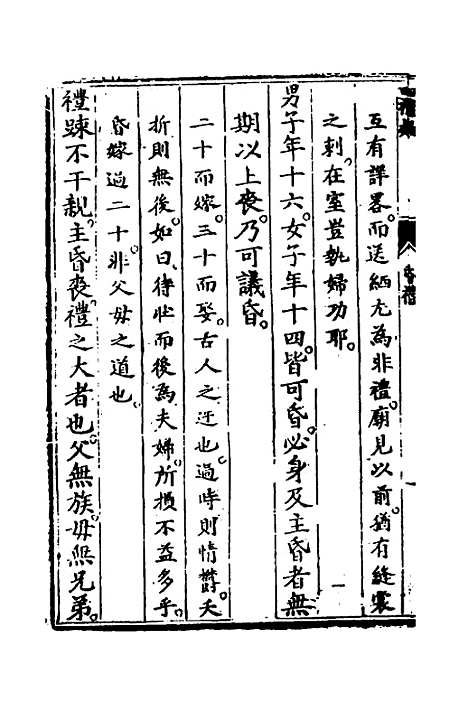 互有詳畧。而送綯尤為非禮。廟見以前。猶有縫裳
之刺。在室豈執婦功耶。
男子年十六。女子年十四。皆可昏。必身及主昏者無
期以上喪。乃可議昏。
二十而嫁。三十而娶。古人之迂也。過時則情欝。夭
折則無後。如曰。待壯而後為夫婦。所損不益多乎。
昏嫁過二十。非父母之道也。
禮踈不干親。主昏喪。禮之大者也。父無族。母無兄弟。
昏禮